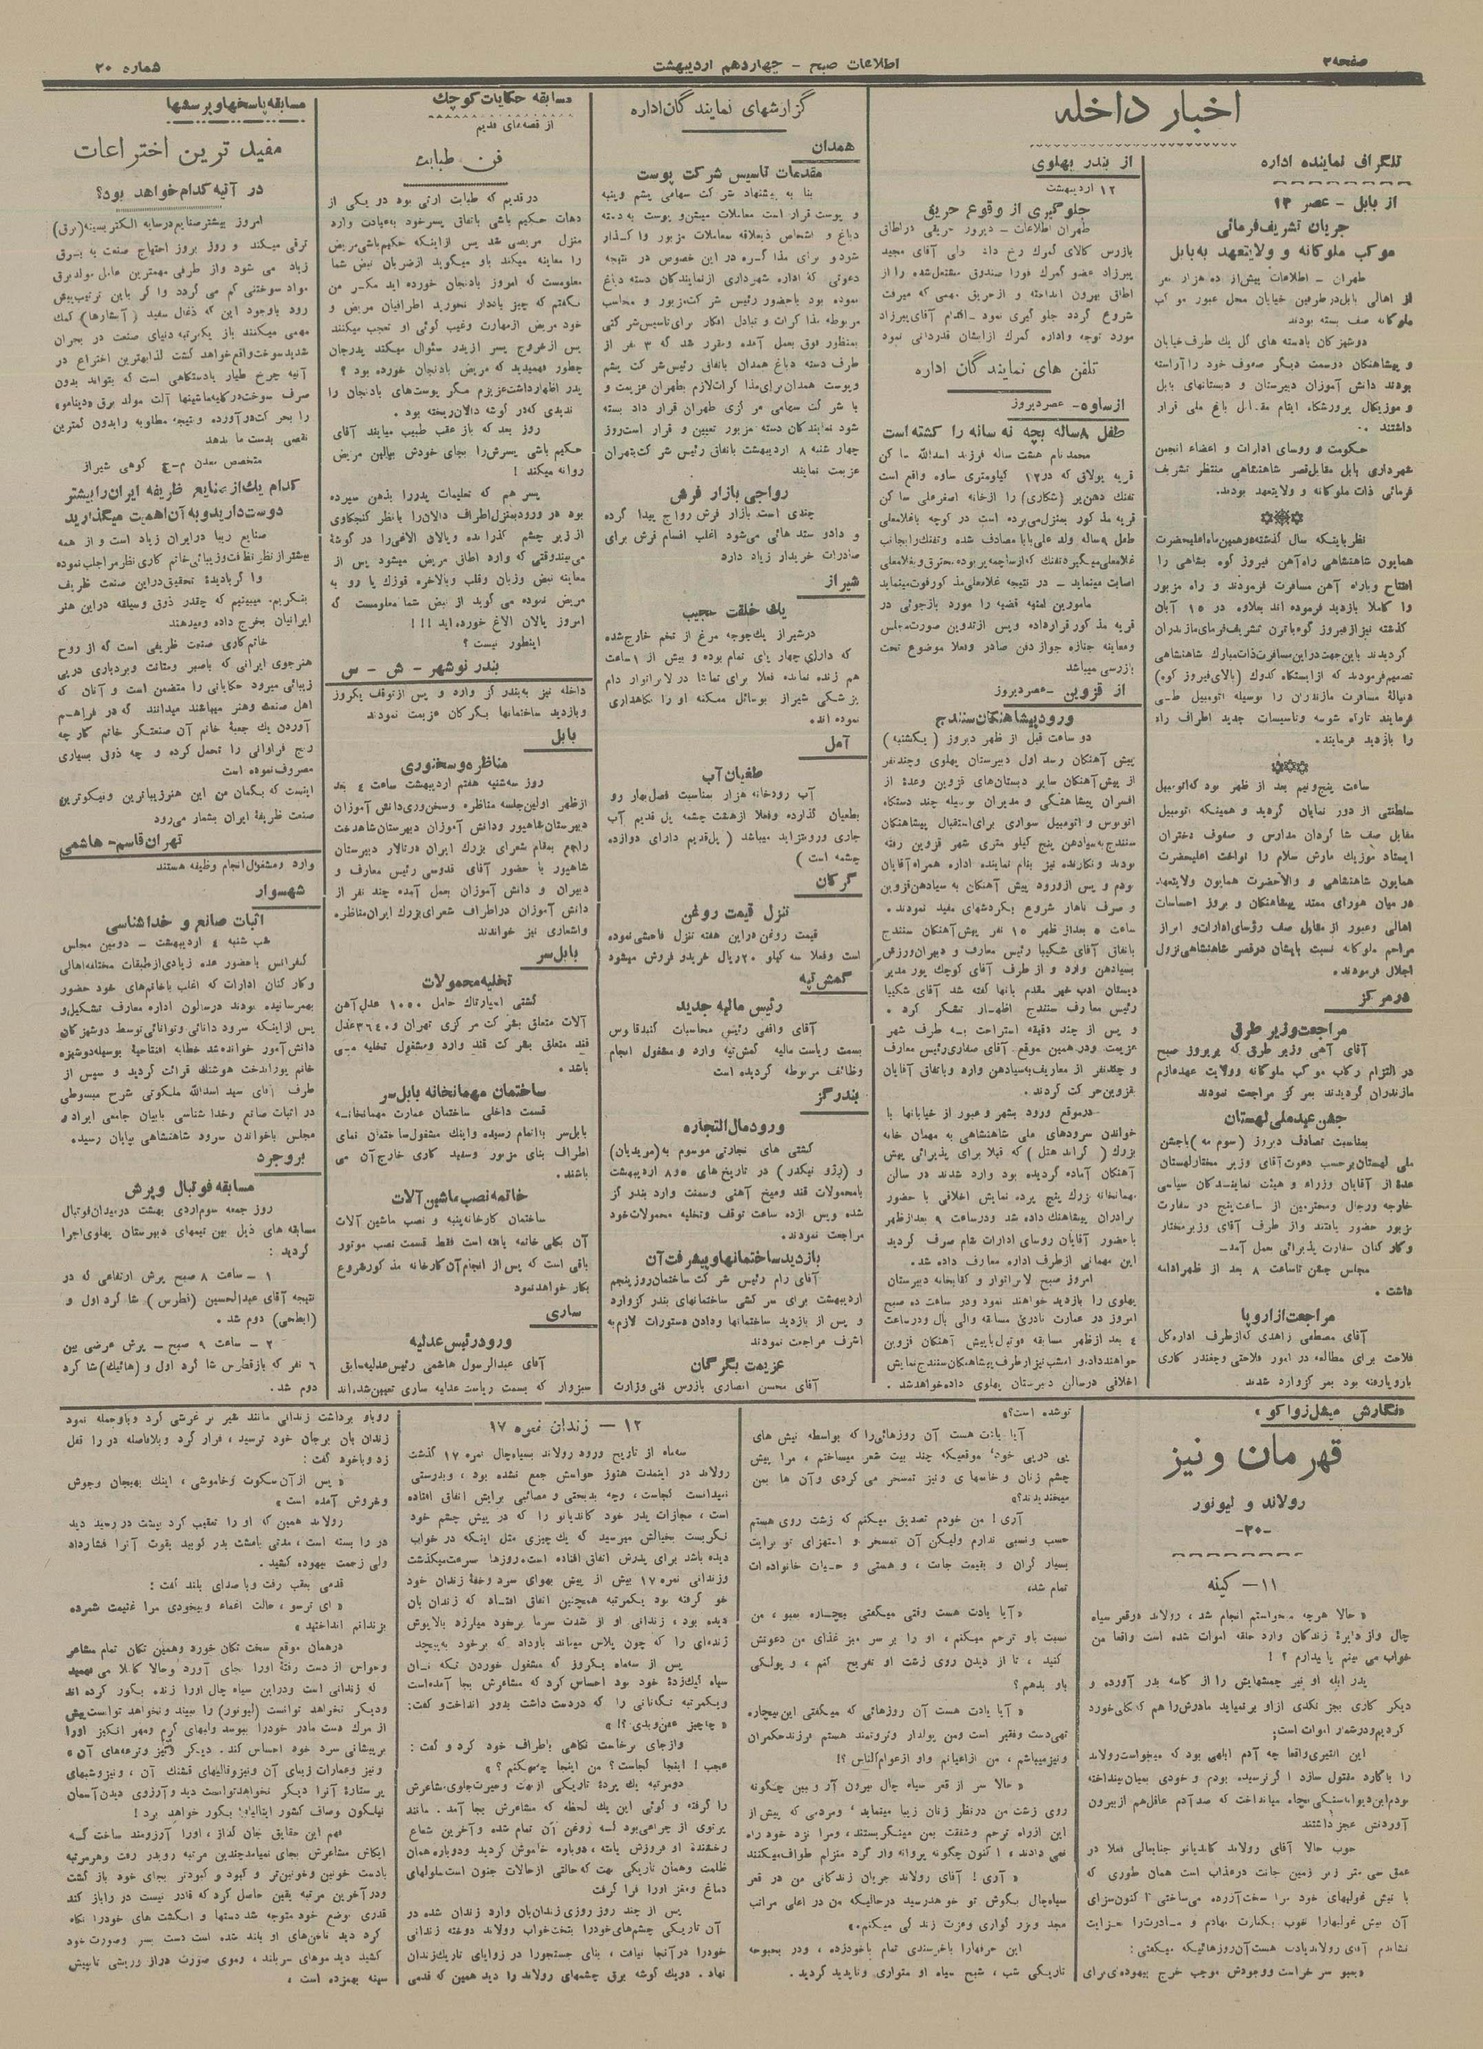 صفحه ۲
اطلاعات صبح - چهاردهم اردیبهشت
شماره ۳۰
اخبار داخله
تلگراف نماینده اداره
از بابل - عصر ۱۳
جریان تشریف‌فرمائی
موکب ملوکانه و ولایتعهد به بابل
از اهالی بابل در طرفین خیابان محل عبور موکب
ملوکانه صف بسته بودند
دوشیزگان با دسته های گل یك طرف خیابان
و پیشاهنگان درسمت دیگر صفوف خود را آراسته
بودند دانش آموزان دبیرستان و دبستانهای بابل
داشتند
حکومت و روسای ادارات و اعضاء انجمن
شهرداری بابل مقابل قصر شاهنشاهی منتظر تشریف
فرمائی ذات ملوکانه و ولایتعهد بودند.
نظر باینکه سال گذشته در همین ماه اعلیحضرت
همایون شاهنشاهی راه آهن فیروز کوه بشاهی را
افتتاح و باراه آهن مسافرت فرمودند و راه مزبور
را کاملا بازدید فرموده اند بعلاوه در ۱۵ آبان
گذشته نیز از فیروز کوه باترن تشریف فرمای مازندران
گردیدند باین جهت در این مسافرت ذات مبارك شاهنشاهی
تصمیم فرمودند که از ایستگاه کدوك (بالای فیروز کوه)
دنباله مسافرت مازندران را بوسیله اتومبیل طی
فرمایند تاراه شوسه و تاسیسات جدید اطراف راه
را بازدید فرمایند.
ساعت پنج و نیم بعد از ظهر بود که اتومبیل
سلطنتی از دور نمایان گردید و همینکه اتومبیل
مقابل صف شاگردان مدارس و صفوف دختران
ایستاد موزیك مارش سلام را نواخت اعلیحضرت
همایون شاهنشاهی و والاحضرت همایون ولایتعهد
در میان هورای ممتد پیشاهنگان و بروز احساسات
اهالی و عبور از مقابل صف رؤسای ادارات و ابراز
مراحم ملوکانه نسبت بایشان در قصر شاهنشاهی نزول
اجلال فرمودند.
در مرکز
مراجعت وزیر طرق
آقای آهی وزیر طرق که پریروز صبح
در التزام رکاب موکب ملوکانه و ولایت عهد عازم
مازندران گردیدند بمرکز مراجعت نمودند
جشن عید ملی لهستان
بمناسبت تصادف دیروز (سوم مه) باجشن
ملی لهستان برحسب دعوت آقای وزیر مختار لهستان
عده از آقایان وزراء و هیئت نمایندگان سیاسی
خارجه و رجال و محترمین از ساعت پنج در سفارت
مزبور حضور یافتند و از طرف آقای وزیر مختار
و کارکنان سفارت پذیرائی بعمل آمد.
مجلس جشن تا ساعت ۸ بعد از ظهر ادامه
داشت.
مراجعت از اروپا
آقای مصطفی زاهدی که از طرف اداره کل
فلاحت برای مطالعه در امور فلاحتی و چغندر کاری
باروپا رفته بود بمرکز وارد شدند
از بندر پهلوی
۱۲ اردیبهشت
جلوگیری از وقوع حریق
طهران اطلاعات - دیروز حریقی در اطاق
بازرس کالای گمرك رخ داد ولی آقای مجید
پیرزاد عضو گمرك فورا صندوق مشتعل شده را از
اطاق بیرون انداخته و از حریق مهمی که میرفت
شروع گردد جلوگیری نمود - اقدام آقای پیرزاد
مورد توجه واداره گمرك از ایشان قدردانی نمود
تلفن های نمایندگان اداره
از ساوه - عصر دیروز
طفل ۸ ساله بچه نه ساله را کشته است
محمد نام هشت ساله فرزند اسدالله ساکن
قریه یولاق که در ۱۲ کیلومتری ساوه واقع است
تفنك دهن پر (شکاری) را از خانه اصغر علی ساکن
قریه مذکور بمنزل می برده است در کوچه با غلامعلی
طفل ۹ ساله ولد علی بابا مصادف شده و تفنك را بجانب
مامورین امنیه قضیه را مورد بازجوئی در
قریه مذکور قرار داده و پس از تدوین صورت مجلس
ومعاینه جنازه جواز دفن صادر و فعلا موضوع تحت
بازرسی میباشد
از قزوین - عصر دیروز
ورود پیشاهنگان سنندج
دو ساعت قبل از ظهر دیروز (یکشنبه)
پیش آهنگان رسد اول دبیرستان پهلوی و چند نفر
از پیش آهنگان سایر دبستان‌های قزوین وعدهٔ از
افسران پیشاهنگی و مدیران بوسیله چند دستگاه
اتوبوس و اتومبیل سواری برای استقبال پیشاهنگان
سنندج به سیاه‌دهن پنج کیلو متری شهر قزوین رفته
بودند و نگارنده نیز بنام نماینده اداره همراه آقایان
بودم و پس از ورود پیش آهنگان به سیاه‌دهن قزوین
و صرف ناهار شروع بگردشهای مفید نمودند.
ساعت ۵ بعد از ظهر ۱۵ نفر پیش‌آهنگان سنندج
باتفاق آقای شکیبا رئیس معارف و دبیران ورزش
بسیاه‌دهن وارد و از طرف آقای کوچك پور مدیر
دبستان ادب خیر مقدم بآنها گفته شد آقای شکیبا
رئیس معارف سنندج اظهار تشکر کرد.
و پس از چند دقیقه استراحت به طرف شهر
عزیمت و در همین موقع آقای صفاری رئیس معارف
و چند نفر از معارف به سیاه‌دهن وارد و باتفاق آقایان
بقزوین حرکت کردند.
درموقع ورود بشهر و عبور از خیابانها با
خواندن سرودهای ملی شاهنشاهی به مهمان خانه
بزرك (گراند هتل) که قبلا برای پذیرائی پیش
آهنگان آماده گردیده بود وارد شدند در سالن
مهمانخانه بزرك پنج پرده نمایش اخلاقی با حضور
برادران پیشاهنك داده شد و در ساعت ۹ بعد از ظهر
با حضور آقایان روسای ادارات شام صرف گردید
این مهمانی از طرف اداره معارف داده شد.
امروز صبح لابراتوار و کتابخانه دبیرستان
پهلوی را بازدید خواهند نمود و در ساعت ده صبح
امروز در عمارت نادری مسابقه والی بال و در ساعت
٤ بعد از ظهر مسابقه فوتبال با پیش آهنگان قزوین
خواهند داد و امشب نیز از طرف پیشاهنگان سنندج نمایش
اخلاقی در سالن دبیرستان پهلوی داده خواهد شد.
گزارشهای نمایندگان اداره
همدان
مقدمات تاسیس شرکت پوست
بنا به پیشنهاد شرکت سهامی پشم و پنبه
و پوست قرار است معاملات میشن و پوست به دسته
دباغ و اشخاص ذیعلاقه معاملات مزبور واگذار
شود و برای مذاکره در این خصوص در نتیجه
دعوتی که اداره شهرداری از نمایندگان دسته دباغ
نموده بود باحضور رئیس شرکت مزبور و محاسب
مربوطه مذاکرات و تبادل افکار برای تاسیس شرکتی
بمنظور فوق بعمل آمده و مقرر شد که ۳ نفر از
طرف دسته دباغ همدان باتفاق رئیس شرکت پشم
و پوست همدان برای مذاکرات لازم بطهران عزیمت و
با شرکت سهامی مرکزی طهران قرار داد بسته
شود نمایندگان دسته مزبور تعیین و قرار است روز
چهار شنبه ۸ اردیبهشت باتفاق رئیس شرکت بتهران
عزیمت نمایند
رواجی بازار فرش
چندی است بازار فرش رواج پیدا کرده
و داد و ستد هائی می‌شود اغلب اقسام فرش برای
صادرات خریدار زیاد دارد
شیراز
یك خلقت عجیب
در شیراز یك جوجه مرغ از تخم خارج شده
که دارای چهار پای تمام بوده و بیش از ۱ ساعت
هم زنده نمانده فعلا برای تماشا در لابراتوار دام
پزشکی شیراز بوسائل ممکنه او را نگاهداری
نموده اند.
آمل
طغیان آب
آب رودخانه هزار بمناسبت فصل بهار رو
بطغیان گذارده و فعلا از هشت چشمه پل قدیم آب
جاری و رو بتزاید میباشد (پل قدیم دارای دوازده
چشمه است)
گرگان
تنزل قیمت روغن
قیمت روغن در این هفته تنزل فاحشی نموده
است و فعلا سه کیلو ۲۰ ریال خرید و فروش میشود
گمش تپه
رئیس مالیه جدید
آقای واقفی رئیس محاسبات گنبد قاوس
بسمت ریاست مالیه گمش‌تپه وارد و مشغول انجام
وظائف مربوطه گردیده است
بندر گز
ورود مال التجاره
کشتی های تجارتی موسوم به (مریدیان)
و (رژو نیکدر) در تاریخ های ۵ و ۸ اردیبهشت
بامحمولات قند و میخ آهنی و سمنت وارد بندر گز
شده و پس از ده ساعت توقف و تخلیه محمولات خود
مراجعت نمودند.
بازدید ساختمانها و پیشرفت آن
آقای رام رئیس شرکت ساختمان روز پنجم
اردیبهشت برای سرکشی ساختمانهای بندر گز وارد
و پس از بازدید ساختمانها و دادن دستورات لازم به
اشرف مراجعت نمودند
عزیمت بگرگان
آقای محسن انصاری بازرس فنی وزارت
مسابقه حکایات کوچك
از قصه های قدیم
فن طبابت
در قدیم که طبابت ارثی بود در یکی از
دهات حکیم باشی باتفاق پسر خود به عیادت وارد
منزل مریضی شد پس از اینکه حکیم باشی مریض
را معاینه میکند باو میگوید از ضربان نبض شما
معلومست که امروز بادنجان خورده اید مگر من
نگفتم که چیز بادار نخورید اطرافیان مریض و
خود مریض از مهارت و غیب گوئی او تعجب میکنند
پس از خروج پسر از پدر سئوال میکند پدرجان
چطور فهمیدید که مریض بادنجان خورده بود ؟
پدر اظهار داشت عزیزم مگر پوست‌های بادنجان را
ندیدی که در گوشه دالان ریخته بود .
روز بعد که باز عقب طبیب میایند آقای
حکیم باشی پسرش را بجای خودش ببالین مریض
روانه میکند !
پسر هم که تعلیمات پدر را بذهن سپرده
بود در ورود بمنزل اطراف دالان را بانظر کنجکاوی
از زیر چشم گذرانده و پالان الاغی را در گوشهٔ
می بیند وقتی که وارد اطاق مریض میشود پس از
معاینه نبض و زبان و قلب و بالاخره قوزك پا رو به
مریض نموده می گوید از نبض شما معلومست که
امروز پالان الاغ خورده اید !!!
اینطور نیست ؟
بندر نوشهر - ش - س
داخله نیز به بندر گز وارد و پس از توقف یکروز
و بازدید ساختمانها بگرگان عزیمت نمودند
بابل
مناظره و سخنوری
روز سه‌شنبه هفتم اردیبهشت ساعت ٤ بعد
از ظهر اولین جلسه مناظره و سخن‌وری دانش آموزان
دبیرستان شاهپور و دانش آموزان دبیرستان شاهدخت
راجع بمقام شعرای بزرك ایران در تالار دبیرستان
شاهپور با حضور آقای قدوسی رئیس معارف و
دبیران و دانش آموزان بعمل آمده چند نفر از
دانش آموزان در اطراف شعرای بزرك ایران مناظره
واشعاری نیز خواندند
بابل سر
تخلیه محمولات
فند متعلق بشرکت قند وارد و مشغول تخلیه می
باشد .
ساختمان مهمانخانه بابل‌سر
قسمت داخلی ساختمان عمارت مهمانخانه
بابل‌سر باتمام رسیده و اینك مشغول ساختمان نمای
اطراف بنای مزبور و سفید کاری خارج آن می
باشند .
خاتمه نصب ماشین آلات
ساختمان کارخانه پنبه و نصب ماشین آلات
آن بکلی خاتمه یافته است فقط قسمت نصب موتور
باقی است که پس از انجام آن کارخانه مذکور شروع
بکار خواهد نمود
ساری
ورود رئیس عدلیه
آقای عبدالرسول هاشمی رئیس عدلیه سابق
سبزوار که بسمت ریاست عدلیه ساری تعیین شده اند
مسابقه پاسخها و پرسشها
مفید ترین اختراعات
در آتیه کدام خواهد بود؟
امروز بیشتر صنایع در سایه الکتریسیته (برق)
ترقی میکند و روز بروز احتیاج صنعت به برق
زیاد می شود و از طرفی مهمترین عامل مولد برق
مواد سوختنی کم می گردد و اگر باین ترتیب پیش
رود باوجود این که ذغال سفید (آبشارها) کمك
مهمی میکنند باز یکمرتبه دنیای صنعت در بحران
شدید سوخت واقع خواهد گشت لذا بهترین اختراع در
آتیه چرخ طیار یا دستگاهی است که بتواند بدون
صرف سوخت در کلیه ماشینها آلت مولد برق «دینامو»
را بحرکت درآورده و نتیجه مطلوبه را بدون کمترین
نقصی بدست ما بدهد
متخصص معدن م-ج کوهی شیراز
کدام یك از صنایع ظریفه ایران را بیشتر
دوست دارید و به آن اهمیت میگذارید
صنایع زیبا در ایران زیاد است و از همه
بیشتر از نظر لطافت و زیبائی خاتم کاری نظر مرا جلب نموده
و اگر با دیدهٔ تحقیق در این صنعت ظریف
بنگریم، میبینیم که چقدر ذوق و سلیقه در این هنر
ایرانیان بخرج داده و میدهند
خاتم کاری صنعت ظریفی است که از روح
هنرجوی ایرانی که باصبر و متانت و بردباری در پی
زیبائی میرود حکایاتی را متضمن است و آنان که
اهل صنعت و هنر میباشند میدانند که در فراهم
آوردن یك جعبهٔ خاتم آن صنعتگر خاتم کار چه
رنج فراوانی را تحمل کرده و چه ذوق بسیاری
مصروف نموده است
اینست که بگمان من این هنر زیباترین و نیکوترین
صنعت ظریفهٔ ایران بشمار می‌رود
تهران قاسم - هاشمی
وارد و مشغول انجام وظیفه هستند
شهسوار
اثبات صانع و خدا شناسی
شب شنبه ٤ اردیبهشت - دومین مجلس
کنفرانس باحضور عده زیادی از طبقات مختلفه اهالی
و کارکنان ادارات که اغلب باخانم‌های خود حضور
بهمرسانیده بودند در سالون اداره معارف تشکیل و
پس از اینکه سرود دانائی و توانائی توسط دوشیزگان
دانش آموز خوانده شد خطابه افتتاحیهٔ بوسیله دوشیزه
خانم پوراندخت هوشنك قرائت گردید و سپس از
طرف آقای سید اسدالله ملکوتی شرح مبسوطی
در اثبات صانع و خدا شناسی بابیان جامعی ایراد و
مجلس باخواندن سرود شاهنشاهی بپایان رسید.
بروجرد
مسابقه فوتبال و پرش
روز جمعه سوم اردی بهشت در میدان فوتبال
مسابقه های ذیل بین تیمهای دبیرستان پهلوی اجرا
گردید :
۱ - ساعت ۸ صبح پرش ارتفاعی که در
نتیجه آقای عبدالحسین (فطرس) شاگرد اول و
(ابطحی) دوم شد .
۲ - ساعت ۹ صبح - پرش عرضی بین
دوم شد .
«نگارش میشل زواکو»
قهرمان ونیز
رولاند و لیونور
-۳۰-
۱۱ - کینه
«حالا هرچه میخواستم انجام شد ، رولاند در قعر سیاه
چال و از دایرهٔ زندگان وارد حلقه اموات شده است واقعا من
خواب می بینم یا بیدارم ؟ !
پدر ابله او نیز چشمهایش را از کاسه بدر آورده و
دیگر کاری بجز تکدی از او بر نمیاید مادرش را هم که بکلی خورد
کردیم و در شمار اموات است؛
این انتیری واقعا چه آدم ابلهی بود که میخواست رولاند
آوردنش عجز داشتند
خوب حالا آقای رولاند کاندیانو جنابعالی فعلا در
عمق سی متر زیر زمین جانت در عذاب است همان طوری که
با نیش غولبهای خود مرا سخت آزرده می‌ساختی اکنون سزای
نشاندم آقای رولاند یادت هست آن روزهائیکه میگفتی :
«بمبو سر خراست و وجودش موجب خرج بیهوده‌ی برای
توشده است؟»
آیا یادت هست آن روزهائی را که بواسطه نیش های
پی درپی خود، موقعیکه چند بیت شعر میساختم ، مرا پیش
چشم زنان و خانمهای ونیز تمسخر می کردی و آن ها بمن
میخندیدند؟»
آری ! من خودم تصدیق میکنم که زشت روی هستم
حسب و نسبی ندارم ولیکن آن تمسخر و استهزای تو برایت
بسیار گران و بقیمت جانت ، و هستی و حیات خانواده ات
تمام شد،
«آیا یادت هست وقتی میگفتی بیچاره بمبو ، من
نسبت باو ترحم میکنم ، او را بر سر میز غذای من دعوتش
کنید ، تا از دیدن روی زشت او تفریح کنم ، و پولکی
باو بدهم؟
«آیا یادت هست آن روزهائی که میگفتی این بیچاره
تهی‌دست و فقیر است و من پولدار و ثروتمند هستم فرزند حکمران
ونیز میباشم ، من از اعیانم و او از عوام الناس ؟!
«حالا سر از قعر سیاه چال بیرون آر و ببین چگونه
روی زشت من درنظر زنان زیبا مینماید، و مردمی که پیش از
این از راه ترحم و شفقت بمن مینگریستند ، و مرا نزد خود راه
نمی دادند ، اکنون چگونه پروانه وار گرد منزلم طواف میکنند
«آری ! آقای رولاند جریان زندگانی من در قعر
سیاه‌چال بگوش تو خواهد رسید در حالیکه من در اعلی مراتب
مجد و بزرگواری و عزت زندگی میکنم.»
این حرفها را باخرسندی تمام باخود زده ، و در بحبوحه
تاریکی شب ، شبح سیاه او متواری و ناپدید گردید.
۱۲ - زندان نمره ۱۷
سه‌ماه از تاریخ ورود رولاند بسیاه‌چال نمره ۱۷ گذشت
رولاند در اینمدت هنوز حواسش جمع نشده بود ، و بدرستی
نمیدانست کجاست ، و چه بدبختی و مصائبی برایش اتفاق افتاده
است ، مجازات پدر خود کاندیانو را که در پیش چشم خود
نگریست بخیالش میرسید که یك چیزی مثل اینکه در خواب
دیده باشد برای پدرش اتفاق افتاده است، روزها سرعت میگذشت
و زندانی نمره ۱۷ بیش از پیش بهوای سرد و خفهٔ زندان خود
خو گرفته بود یکمرتبه همچنین اتفاق افتاد که زندان بان
دیده بود ، زندانی او از شدت سرما برخود میلرزد بالاپوش
زنده‌ای را که چون پلاس میماند باو داد که برخود بپیچد
پس از سه‌ماه یکروز که مشغول خوردن تکه نان
سیاه کپك زدهٔ خود بود احساس کرد که مشاعرش بجا آمده است
و یکمرتبه تکه‌نانی را که در دست داشت بدور انداخت و گفت:
«چه‌چیز عفن و بدی ؟!»
و از جای برخاست نگاهی باطراف خود کرد و گفت :
عجب ! اینجا کجاست؟ من اینجا چه‌میکنم ؟ »
دو مرتبه یك پردهٔ تاریکی از بهت و حیرت جلوی مشاعرش
را گرفته و گوئی این یك لحظه که مشاعرش بجا آمد ، مانند
پرتوی از چراغی بود که روغن آن تمام شده و آخرین شعاع
رخشندهٔ او فروزش یافته ، دوباره خاموش گردید و دوباره همان
ظلمت و همان تاریکی بهت که حالتی از حالات جنون است سلولهای
دماغ و مغز او را فرا گرفت
پس از چند روز روزی زندان‌بان وارد زندان شده در
آن تاریکی چشم‌های خود را بتخت‌خواب رولاند دوخته زندانی
خود را در آنجا نیافت ، بنای جستجو را در زوایای تاریك زندان
نهاد. در یك گوشه برق چشمهای رولاند را دید همین که قدمی
رو باو برداشت زندانی مانند شیر نر غرشی کرد و باو حمله نمود
زندان بان برجان خود ترسید ، فرار کرد و بلافاصله در را قفل
زد و باخود گفت :
«پس از آن سکوت و خاموشی ، اینك بهیجان و جوش
و خروش آمده است»
رولاند همین که او را تعقیب کرد بپشت در رسید دید
در را بسته است ، مدتی بامشت بدر کوبید بقوت آنرا فشار داد
ولی زحمت بیهوده کشید .
قدمی بعقب رفت و با صدای بلند گفت :
«ای ترسو ، حالت اغماء و بیخودی مرا غنیمت شمرده
بزندانم انداختید»
درهمان موقع سخت تکان خورد و همین تکان تمام مشاعر
و حواس از دست رفتهٔ او را بجای آورد و حالا کاملا می فهمید
که زندانی است و در این سیاه چال او را زنده بگور کرده اند
و دیگر نخواهد توانست (لیونور) را ببیند و نخواهد توانست پیش
از مرك دست مادر خود را ببوسد و لبهای گرم و مهر انگیز او را
برپیشانی سرد خود احساس کند . دیگر ونیز و ترعه‌های آن
ونیز و عمارات زیبای آن و نیز و قالیهای قشنك آن ، و نیز و شبهای
پر ستارهٔ آنرا دیگر نخواهد توانست دید و آرزوی دیدن آسمان
نیلگون و صاف کشور ایتالیا را بگور خواهد برد !
فهم این حقایق جان گداز ، او را آرزومند ساخت که
ایکاش مشاعرش بجای نمیامد چندین مرتبه رو بدر رفت و هر مرتبه
بادست خونین و خونین‌تر و کبود و کبودتر بجای خود باز گشت
و در آخرین مرتبه یقین حاصل کرد که قادر نیست در را باز کند
قدری بوضع خود متوجه شد دستها و انگشت های خود را نگاه
کرد دید ناخن‌های او بلند شده است دست بسر و صورت خود
کشید دید موهای سر بلند ، و موی صورت دراز و ریشی تا پیش
سینه بهمزده است ،